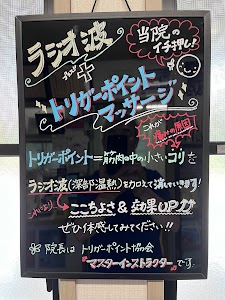 ラジオ波
当院の
イチ押し!
+
トリガーポイント
マッサージ
これが
痛みの原因
トリガーポイント=筋肉の中の小さいコリを
ラジオ波(深部温熱)を加えて流していきます!
これにより
ここちよさ&効果UP♪
ぜひ体感してみてください!!
院長は トリガーポイント協会
『マスターインストラクター』です。